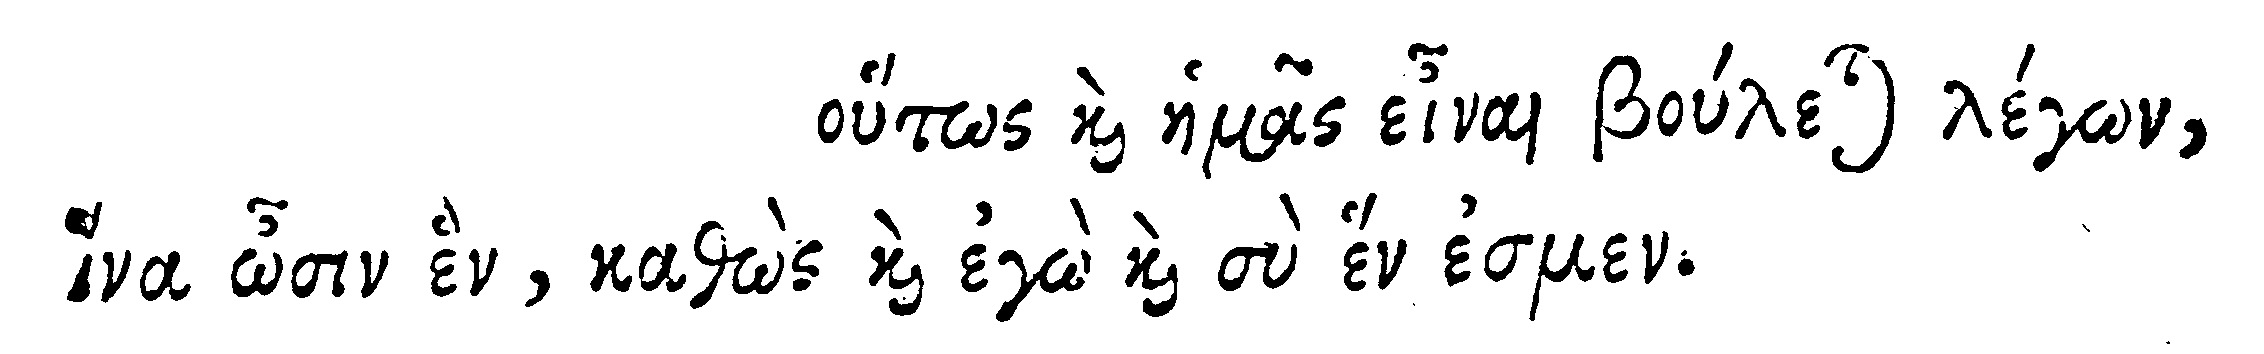 οὕτως ϗ̀ ἡμᾶς εἶναι βούλεται λέγων,
ἵνα ὦσιν ἓν, καθὼς ϗ̀ ἐγὼ ϗ̀ σὺ ἕν ἐσμεν.